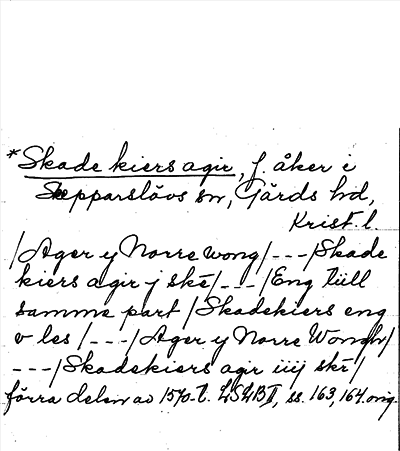 *Skade kiers agir, f. åker i
Skepparslövs sn, Gärds hd,
Krist. l.
/Ager y Norre wong/---/Skade
kiers agir j ske/---/Eng tüll
samme part/Skadekiers eng
v les/---/Ager y Norre Wongh/
---/Skadekiers agr iiij ske/
förra delen av 1570-t. LSLB II, ss. 163, 164. orig.